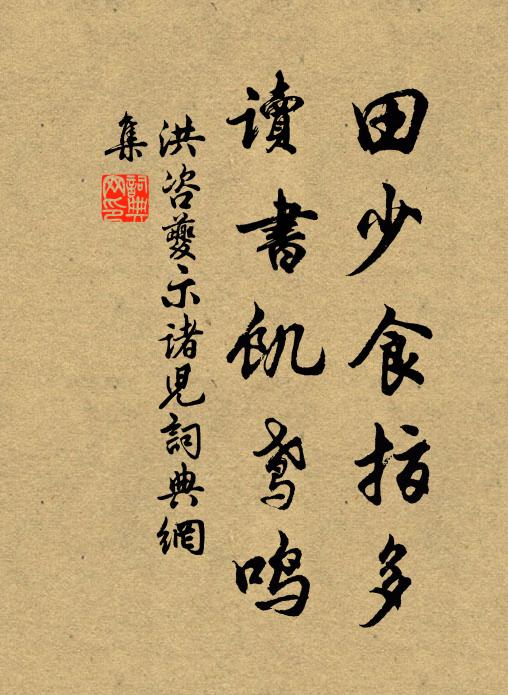 田少食指多
讀書飢鳶鳴
洪咨夔示諸兒詞典網
集
詞典網印